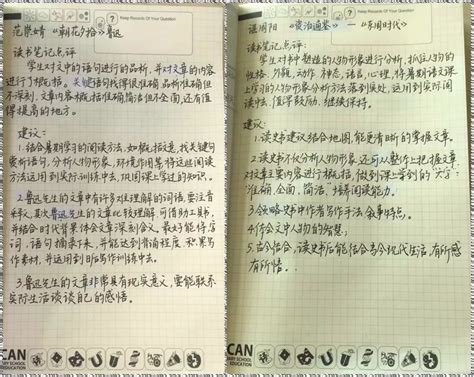 Keep Records Of Your Question
范思婷 《朝花夕拾》鲁迅
读书笔记点评:
学生对文中的语句进行的品析,并对文章的内容
进行了概括。关键语句找得很准确,品析准确但
不深刻,文章内容概括准确简洁但不全面,还有值
得提高的地方。
建议:
1.结合暑期学习的阅读方法,如概括文意,找关键句
赏析语句,分析人物形象,环境作用等将这些阅读
方法运用到实际训练中去,巩固课上学过的知识。
2.鲁迅先生的文章中有许多难理解的词语,要注意
其次鲁迅先生的文章比较难理解,可借助工具书,
并结合时代背景体会文章深刻含义。最好能将字
词、语句摘录下来,并能达到背诵程度,积累写
作素材,并运用到日后写作训练中去。
3.鲁迅先生的文章非常具有现实意义,要能联系
实际生活谈谈自己的感悟。
CAN
MY SCHOOL
EDUCATION
Keep Records Of Your Question
《资治通鉴》—《东周时代》
读书笔记点评:
学生对书中塑造的人物形象进行分析,抓住人物的
性格、外貌、动作、神态、语言、心理,将暑期语文课
上学习的人物形象分析方法落到实处,运用到实际阅
读中去,值得鼓励,继续保持。
建议:
1.读史书建议结合地图,能更清晰的掌握文章。
2.读史书不仅分析人物形象,还可从整体上把握文章
对文章主要内容进行概括,做到课上学到的六字:
准确,全面,简洁,培养阅读能力。
3.领略史书中作者写作手法、叙事特点。
4.体会文中人物的智慧。
5.古今结合,读史书后能结合当今现代生活,有所感
有所悟。
CAN
MY SCHOOL
EDUCATION